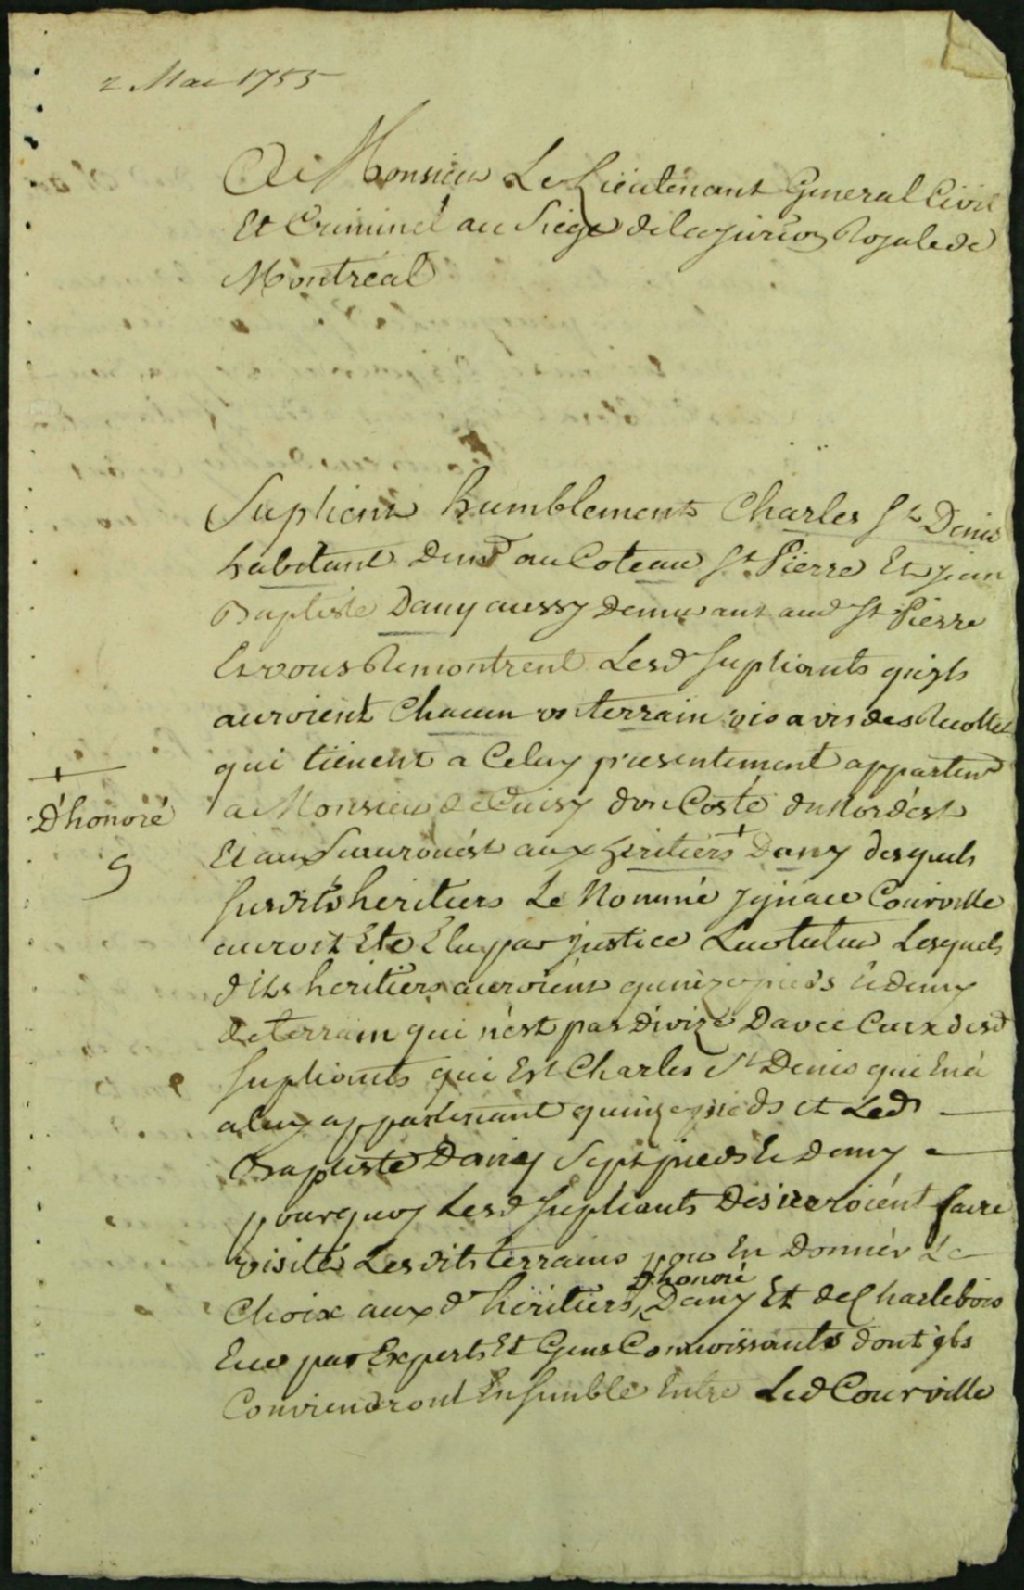 2 Mai 1755
A Monsieur Le Lieutenant General Civil
Et Criminel au Siege de la jurion Royale de
Montreal
Suplient humblement Charles St Denis
habitant demt au Coteau St Pierre Et jean
Baptiste Dany aussy demeurant aud St Pierre
Et vous Remontrent Lesd Supliants quils
auroient Chacun un terrain vis a vis des Recollets
qui tienent a Celuy presentement appartent
a Monsieur de d'un Costé du Nordest
Et au Surouest aux heritiers + Dany desquels
+
D'honoré
susdits heritiers Le Nommé jgnace Courville
auroit Eté Elu par justice tuteur Lesquels
dits heritiers auroient quinze pieds Et demy
de terrain qui n'est pas divizé Davec Ceux desd
supliants qui Est Charles St Denis qui En a
a luy appartenant quinze pieds et Led
Baptiste Dany Sept pieds Et demy
pourquoy Lesd Supliants Desireroient faire
visité Lesdits terrains pour En donner Le
Choix aux d heritiers D'honoré Dany Et de Charlebois
par Experts Et Gens Connoissants dont ils
Conviendront Ensemble Entre Led Courville